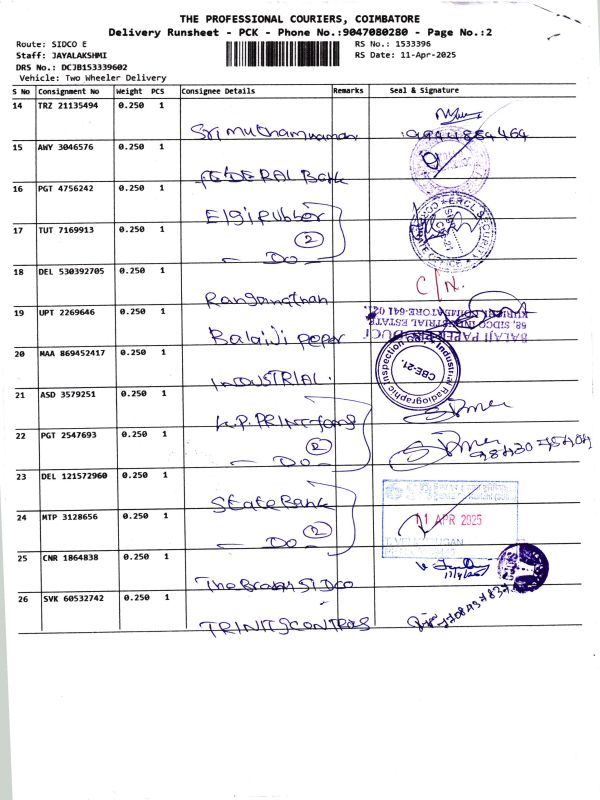 THE PROFESSIONAL COURIERS, COIMBATORE
Delivery Runsheet - PCK - Phone No.:9047080280 - Page No.:2
Route: SIDCO E
RS No.: 1533396
Staff: JAYALAKSHMI
RS Date: 11-Apr-2025
DRS No.: DCJB153339602
Vehicle: Two Wheeler Delivery
S No Consignment No Weight PCS Consignee Details Remarks Seal & Signature
14 TRZ 21135494 0.250 1
15 AWY 3046576 0.250 1
FEDERAL Bank
16 PGT 4756242 0.250 1
Elgi rubber
17 TUT 7169913 0.250 1
2
- Do -
18 DEL 530392705 0.250 1
C/N.
Ranganathan
19 UPT 2269646 0.250 1
Balaji paper
BALAJI PAPER
68, SIDCO INDUSTRIAL ESTATE
20 MAA 869452417 0.250 1
INDUSTRIAL.
Industrial Radiographic Inspection
CBE-21.
21 ASD 3579251 0.250 1
K.P. PRINT
22 PGT 2547693 0.250 1
2
- Do -
23 DEL 121572960 0.250 1
State Bank
24 MTP 3128656 0.250 1
2
- Do -
11 APR 2025
25 CNR 1864838 0.250 1
SIDCO
26 SVK 60532742 0.250 1